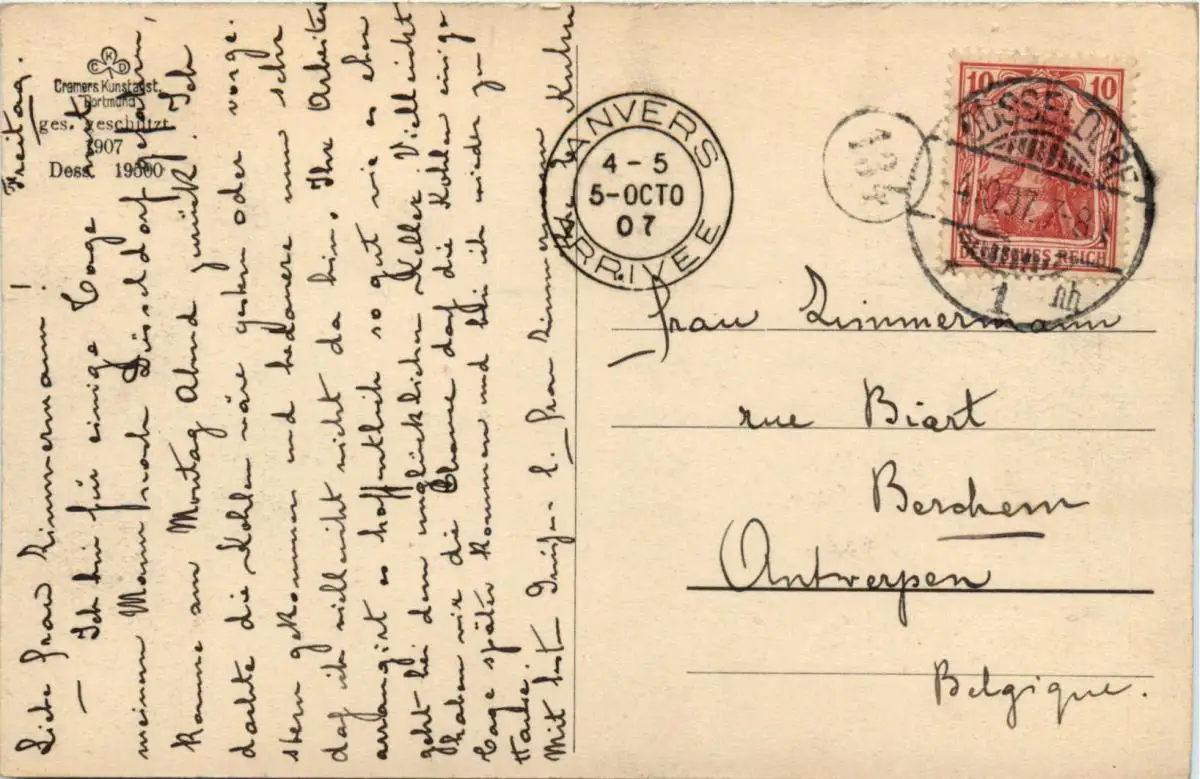 Freitag.
Liebe Frau Zimmermann!
Ich bin für einige Tage mit
meinem Mann nach Düsseldorf gefahren,
komme am Montag Abend zurück. Ich
dachte die Kohlen wäre gestern oder vorge-
stern gekommen und bedauere nun sehr
daß ich vielleicht nicht da bin. Ihr Arbeiter
arrangirt es hoffentlich so gut wie es eben
geht bei dem unglücklichen Keller. Vielleicht
haben wir die Chance daß die Kohlen einige
Tage später kommen und bin ich wieder zu
Hause.
Mit best. l. Frau Zimmermann Ihre
Kuhn
CKD
Cramers Kunstanst.
Dortmund
ges. geschützt
1907
Dess. 19500
ANVERS
4-5
5-OCTO
07
ARRIVEE
134
10 10
DEUTSCHES REICH
DÜSSELDORF
4.10.07. 7-8
1 nh
Frau Zimmermann
rue Biart
Berchem
Antwerpen
Belgique.